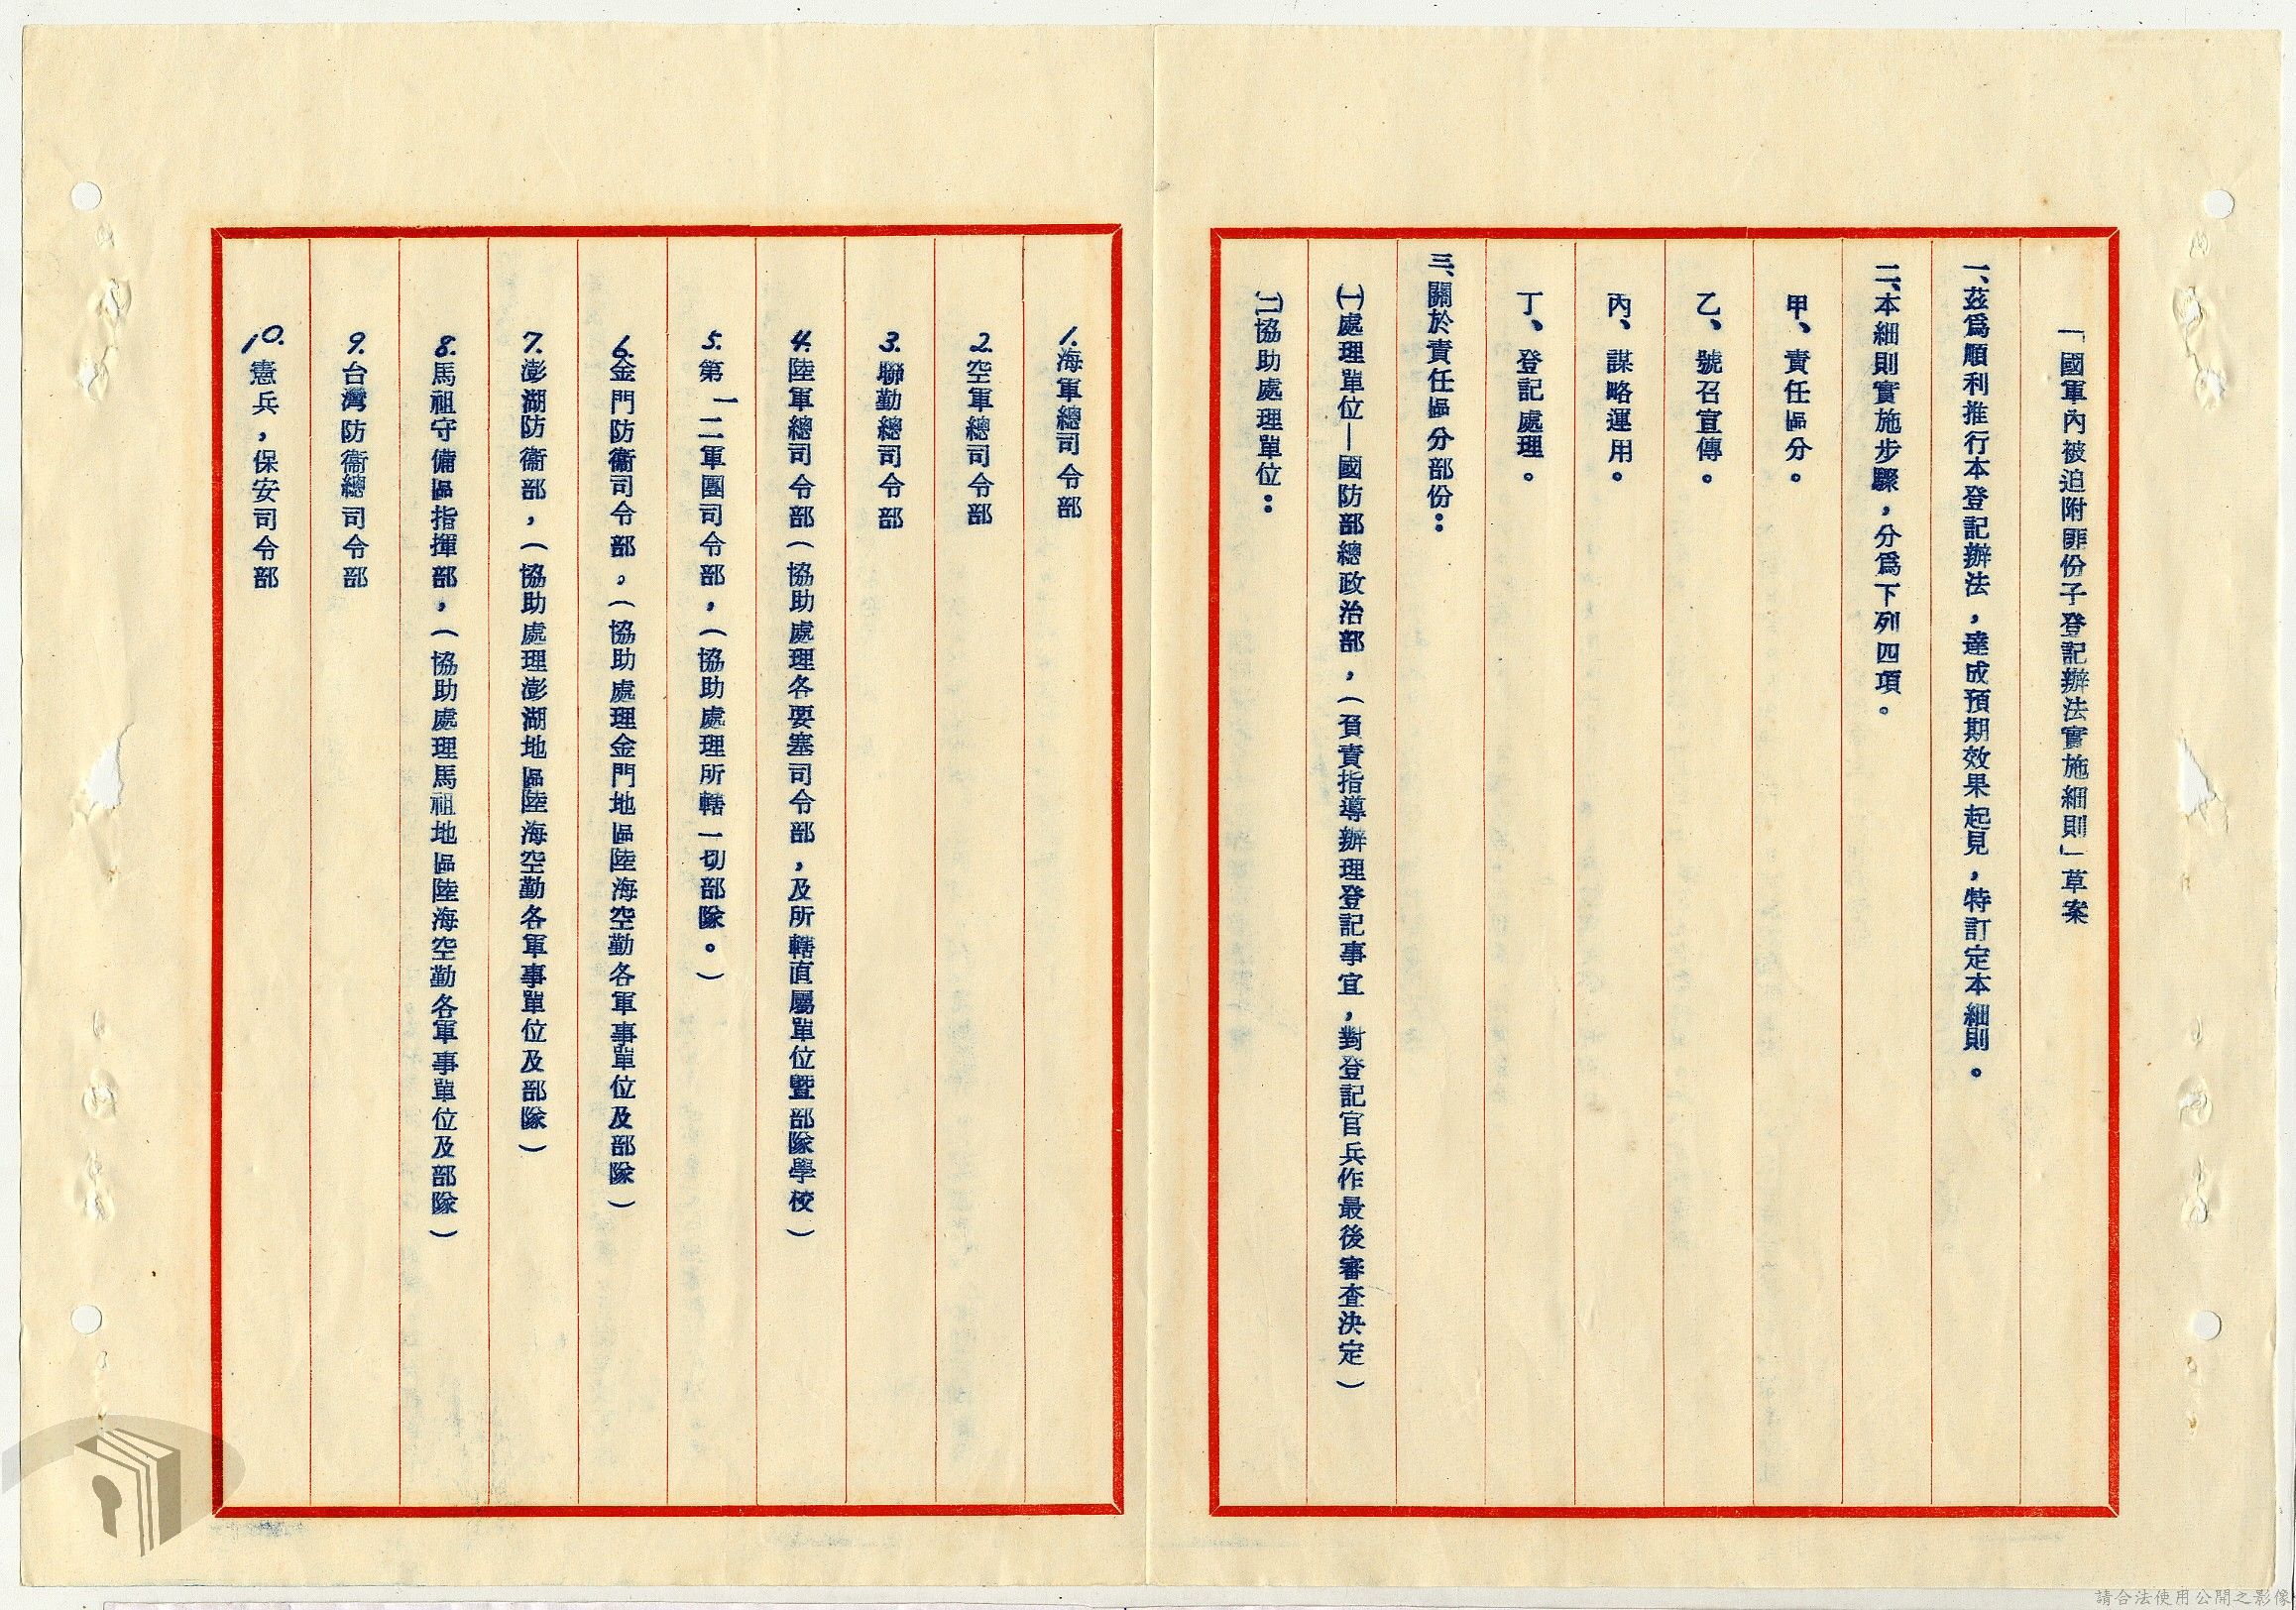 「國軍內被迫附匪份子登記辦法實施細則」草案
一、茲為順利推行本登記辦法，達成預期效果起見，特訂定本細則。
二、本細則實施步驟，分為下列四項。
甲、責任區分。
乙、號召宣傳。
丙、謀略運用。
丁、登記處理。
三、關於責任區分部份：
㈠處理單位—國防部總政治部，（負責指導辦理登記事宜，對登記官兵作最後審查決定）
㈡協助處理單位：
1.海軍總司令部
2.空軍總司令部
3.聯勤總司令部
4.陸軍總司令部（協助處理各要塞司令部，及所轄直屬單位暨部隊學校）
5.第一二軍團司令部，（協助處理所轄一切部隊。）
6.金門防衛司令部。（協助處理金門地區陸海空勤各軍事單位及部隊）
7.澎湖防衛部，（協助處理澎湖地區陸海空勤各軍事單位及部隊）
8.馬祖守備區指揮部，（協助處理馬祖地區陸海空勤各軍事單位及部隊）
9.台灣防衛總司令部
10.憲兵，保安司令部
請合法使用公開之影像